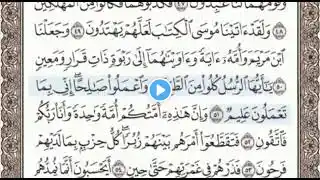 فَكَذَّبُوهُمَا فَكَانُوا۟ مِنَ ٱلْمُهْلَكِينَ
٤٨ وَلَقَدْ ءَاتَيْنَا مُوسَى ٱلْكِتَٰبَ لَعَلَّهُمْ يَهْتَدُونَ ٤٩ وَجَعَلْنَا
ٱبْنَ مَرْيَمَ وَأُمَّهُۥٓ ءَايَةً وَءَاوَيْنَٰهُمَآ إِلَىٰ رَبْوَةٍ ذَاتِ قَرَارٍ وَمَعِينٍ
٥٠ يَٰٓأَيُّهَا ٱلرُّسُلُ كُلُوا۟ مِنَ وَٱعْمَلُوا۟ صَٰلِحًا إِنِّى بِمَا
تَعْمَلُونَ عَلِيمٌ ٥١ وَإِنَّ هَٰذِهِۦٓ أُمَّتُكُمْ أُمَّةً وَٰحِدَةً وَأَنَا۠ رَبُّكُمْ
فَٱتَّقُونِ ٥٢ فَتَقَطَّعُوٓا۟ أَمْرَهُم بَيْنَهُمْ زُبُرًا كُلُّ حِزْبٍۭ بِمَا لَدَيْهِمْ
فَرِحُونَ ٥٣ فَذَرْهُمْ فِى غَمْرَتِهِمْ حَتَّىٰ حِينٍ ٥٤ أَيَحْسَبُونَ أَنَّمَا نُمِدُّهُم